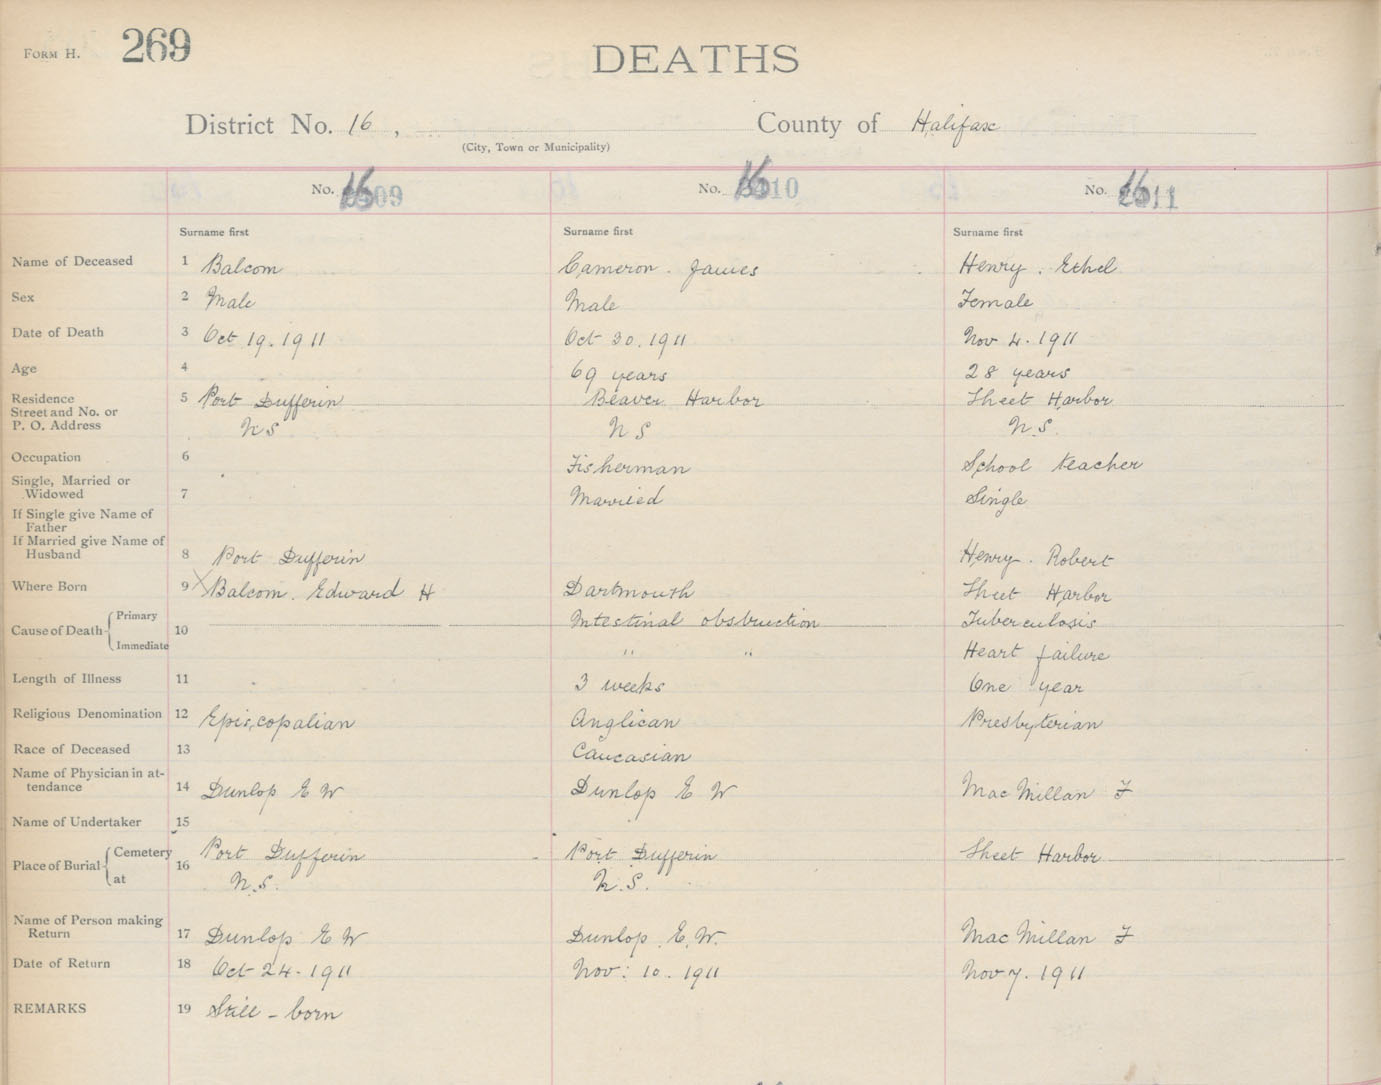 FORM H. 269
DEATHS
District No. 16, County of Halifax
(City, Town or Municipality)
No. 16 No. 16 No. 16
Surname first Surname first Surname first
Name of Deceased 1 Balcom Cameron. James Henry. Ethel
Sex 2 Male Male Female
Date of Death 3 Oct 19. 1911 Oct 30. 1911 Nov 4. 1911
Age 4 69 years 28 years
Residence 5 Port Dufferin Beaver Harbor Sheet Harbor
Street and No. or
P. O. Address N S N S N.S.
Occupation 6 Fisherman School teacher
Single, Married or
Widowed 7 Married Single
If Single give Name of
Father
If Married give Name of
Husband 8 Port Dufferin Henry. Robert
Where Born 9 X Balcom. Edward H Dartmouth Sheet Harbor
Primary Intestinal obstruction Tuberculosis
Cause of Death 10
Immediate " " Heart failure
Length of Illness 11 3 weeks One year
Religious Denomination 12 Episcopalian Anglican Presbyterian
Race of Deceased 13 Caucasian
Name of Physician in at-
tendance 14 Dunlop E W Dunlop E W MacMillan F
Name of Undertaker 15
Cemetery Port Dufferin Port Dufferin Sheet Harbor
Place of Burial 16
at N.S. N.S.
Name of Person making
Return 17 Dunlop E W Dunlop. E. W. MacMillan F
Date of Return 18 Oct 24. 1911 Nov. 10. 1911 Nov 7. 1911
REMARKS 19 Still - born